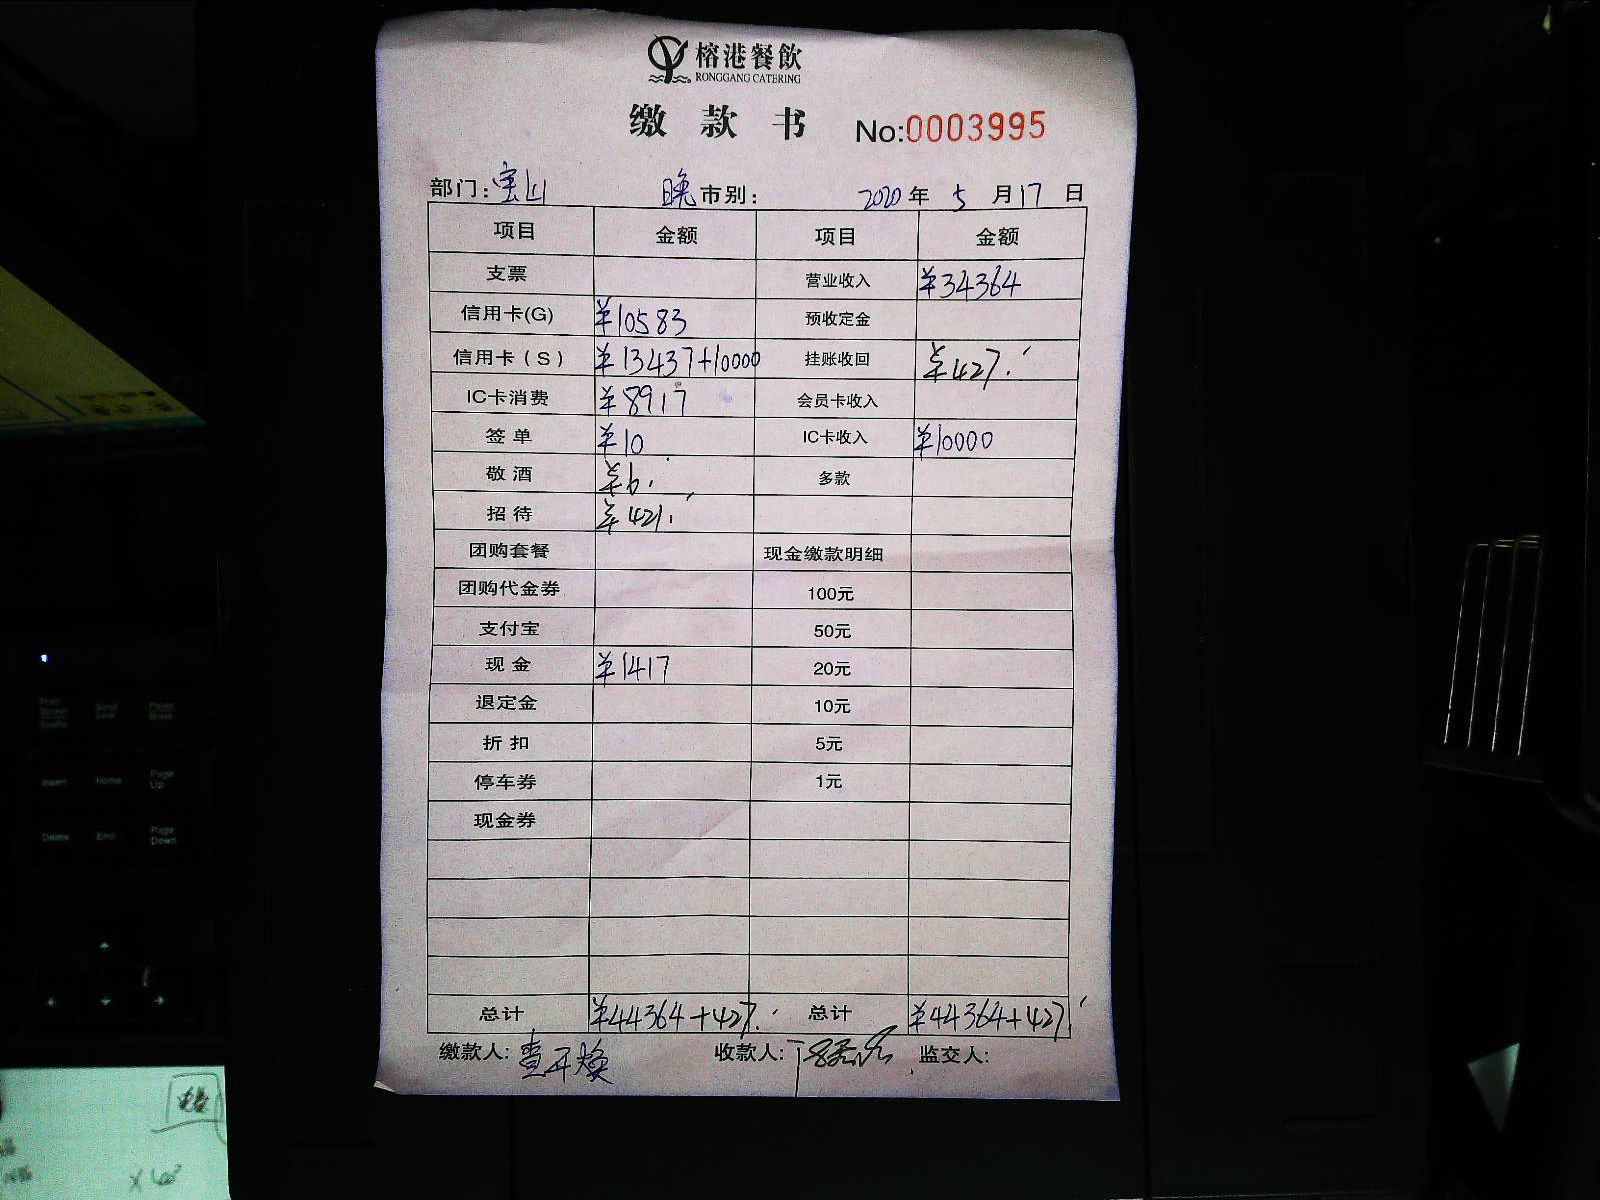 榕港餐飲
RONGGANG CATERING
缴款书 No:0003995
部门: 宝山 晚市别: 2020年5月17日
项目 金额 项目 金额
支票 营业收入 ¥34364
信用卡(G) ¥10583 预收定金
信用卡(S) ¥13437+10000 挂账收回 ¥427.
IC卡消费 ¥8917 会员卡收入
签单 ¥10 IC卡收入 ¥10000
敬酒 ¥6. 多款
招待 ¥421.
团购套餐 现金缴款明细
团购代金券 100元
支付宝 50元
现金 ¥1417 20元
退定金 10元
折扣 5元
停车券 1元
现金券
总计 ¥44364+427. 总计 ¥44364+427.
缴款人: 收款人: 监交人:
Insert Home Page Up
Delete End Page Down